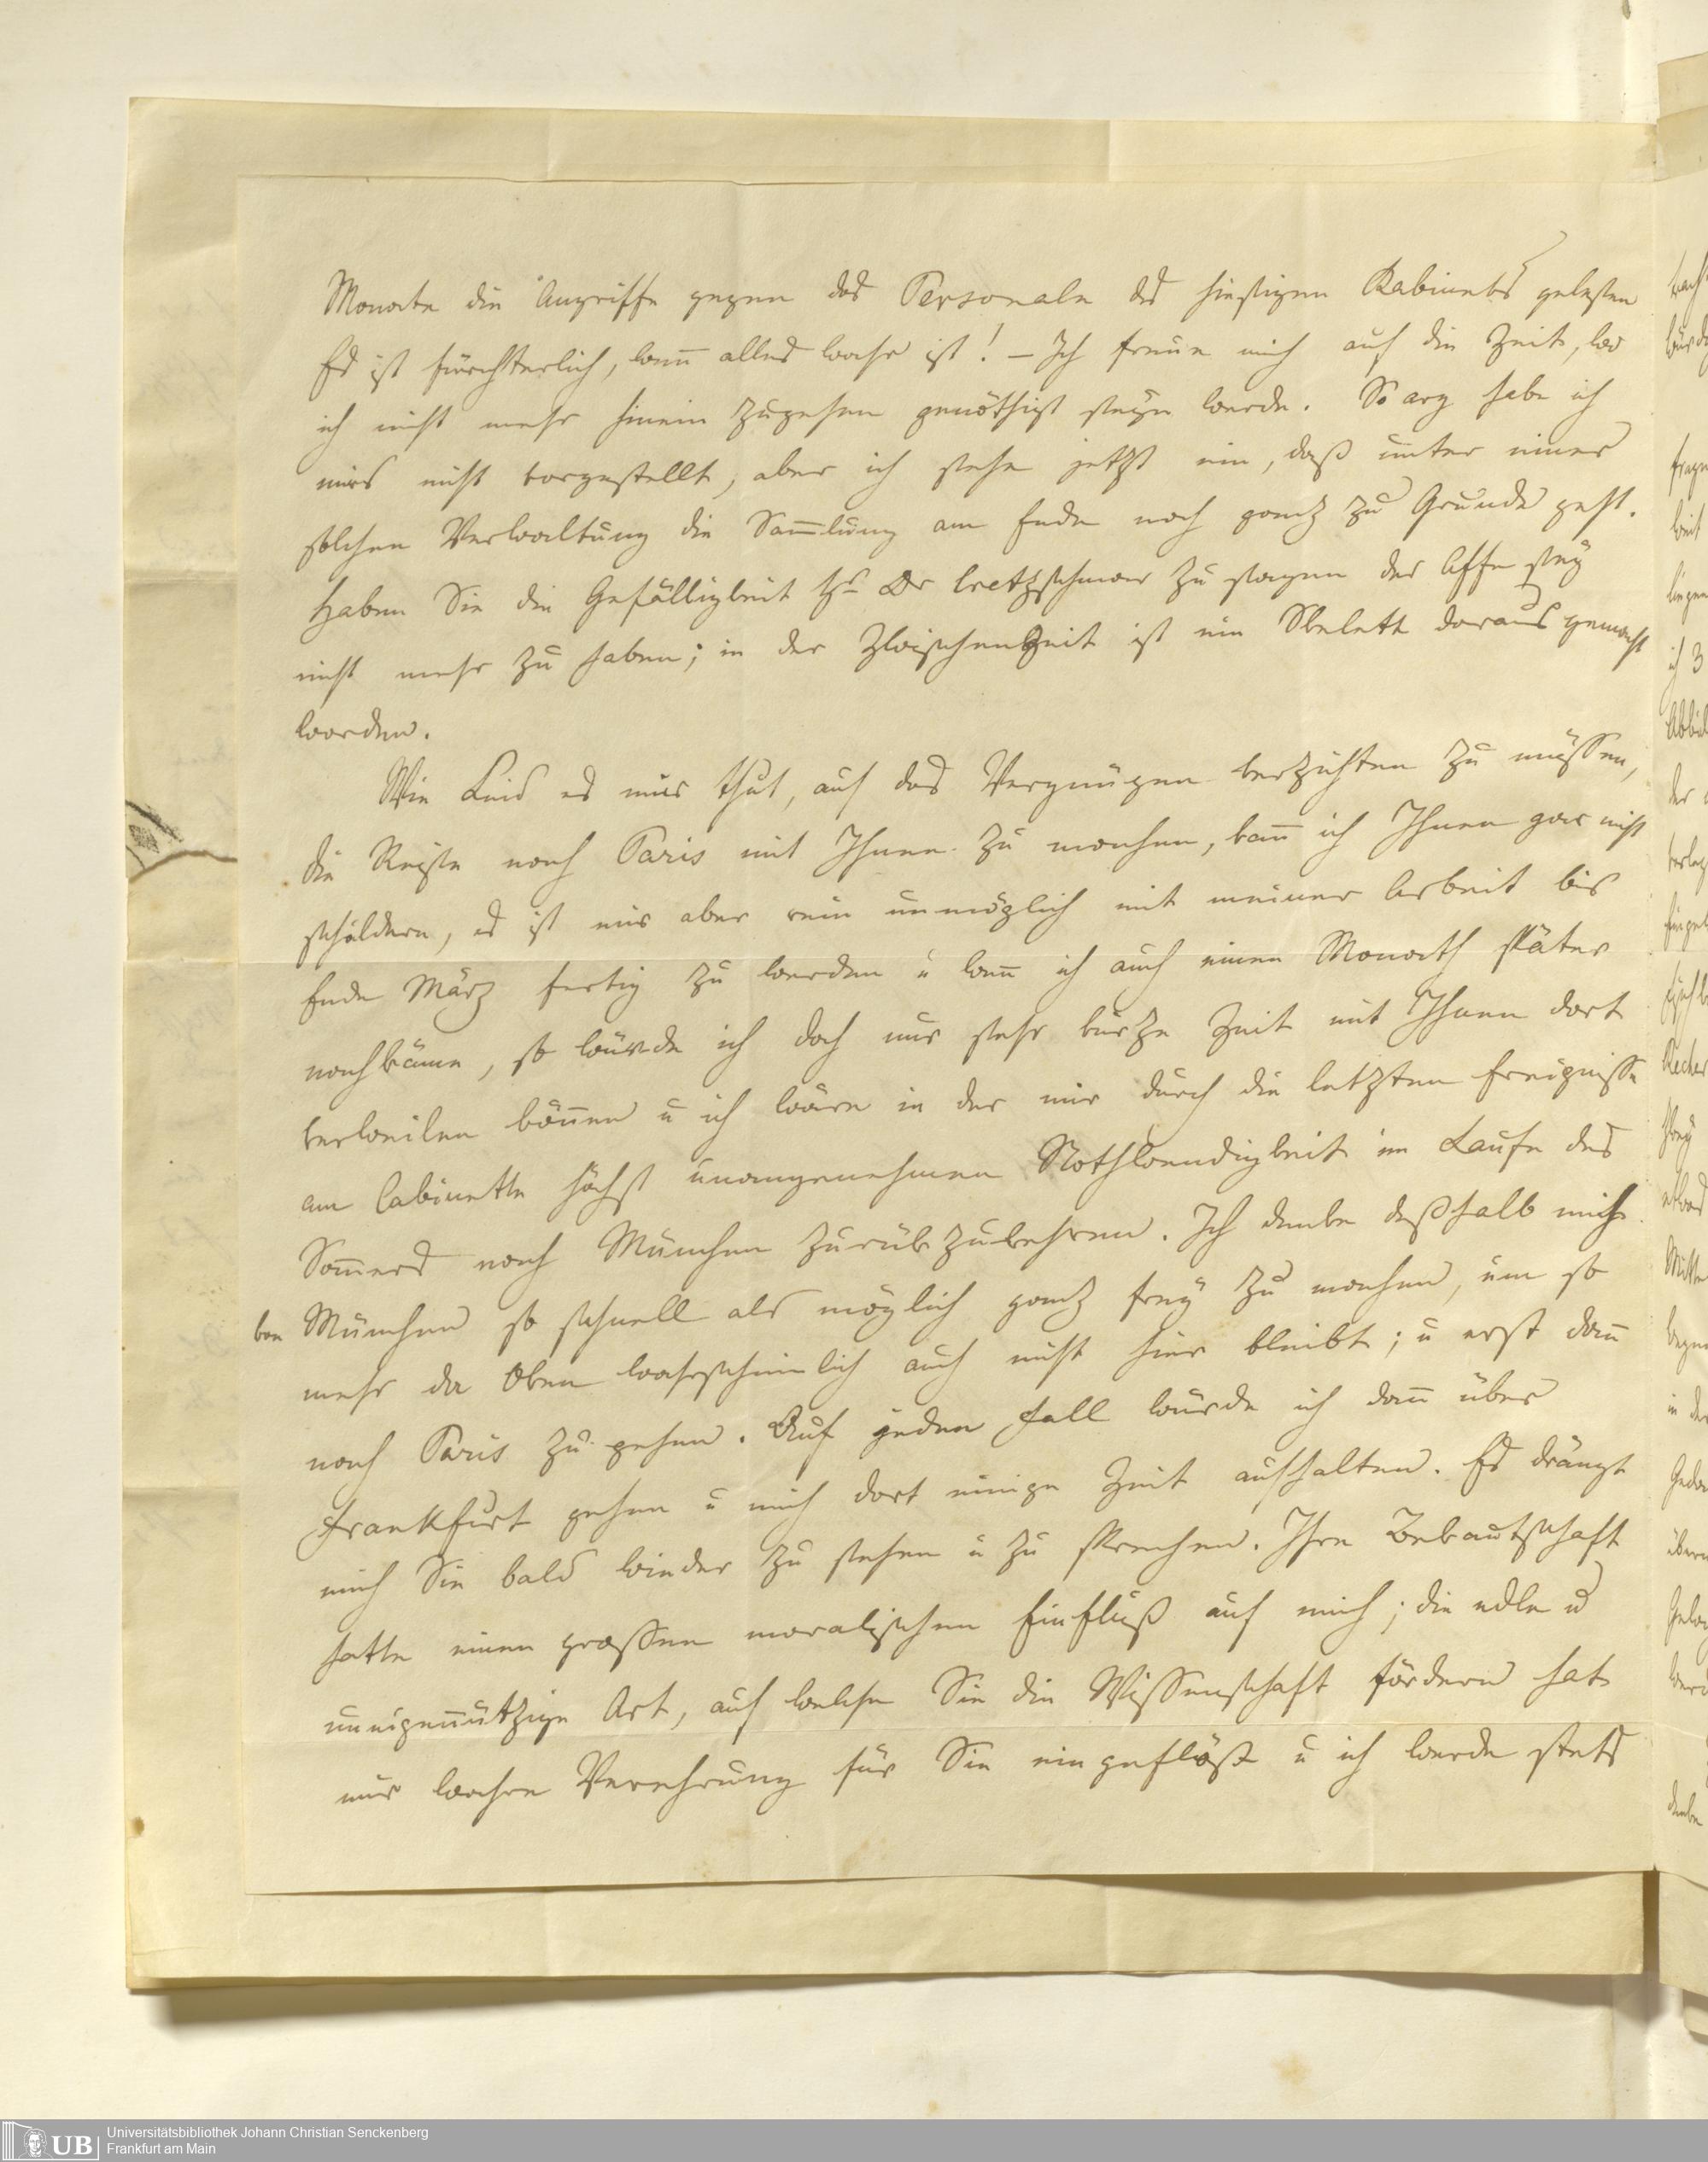 Monate die Angriffe gegen das Personale des hiesigen Kabinets gelesen
Es ist fürchterlich, wenn alles wahr ist! – Ich freue mich auf die Zeit, wo
ich nicht mehr hinein zugehen genöthigt seyn werde. So arg habe ich
mirs nicht vorgestellt, aber ich sehe jetzt ein, daß unter einer
solchen Verwaltung die Sam̅lung am Ende noch ganz zu Grunde geht.
Haben Sie die Gefälligkeit Hr Dr Cretzschmar zu sagen der Affe sey
nicht mehr zu haben; in der Zwischenzeit ist ein Skelett daraus gemacht
worden.
Wie Leid es mir thut, auf das Vergnügen verzichten zu müssen,
die Reise nach Paris mit Ihnen zu machen, kan̅ ich Ihnen gar nicht
schildern, es ist mir aber rein unmöglich mit meiner Arbeit bis
Ende März fertig zu werden u wen̅ ich auch einen Monath später
nachkäme, so würde ich doch nur sehr kurze Zeit mit Ihnen dort
verweilen kön̅en u ich wäre in der mir durch die letzten Ereignisse
am Cabinette höchst unangenehmen Nothwendigkeit im Laufe des
Som̅ers nach München zurükzukehren. Ich denke deßhalb mich
von München so schnell als möglich ganz frey zu machen, um so
mehr da Oken wahrscheinlich auch nicht hier bleibt; u erst dan̅
nach Paris zu gehen. Auf jeden Fall würde ich dan̅ über
Frankfurt gehen u mich dort einige Zeit aufhalten. Es drängt
mich Sie bald wieder zu sehen u zu sprechen. Ihre Bekantschaft
hatte einen grossen moralischen Einfluß auf mich; die edle u
uneigen̅ützige Art, auf welche Sie die Wissenschaft fördern hat
mir wahre Verehrung für Sie eingeflößt u ich werde stets
UB Universitätsbibliothek Johann Christian Senckenberg
Frankfurt am Main